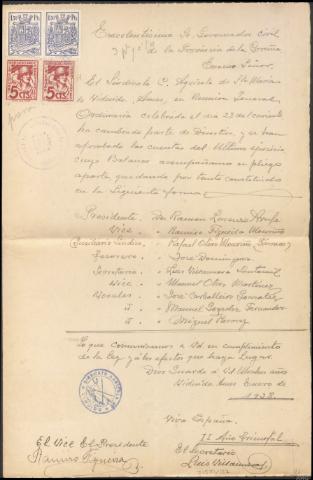 Excelentísimo Sr. Governador civil
de la Provincia de la Coruña
Excmo Señor.
El Sindicato C. Agricola de Sta Maria
de Viduido, Ames, en Reunion General
Ordinaria celebrada el dia 23 del coriente
ha cambiado parte de Directiva, y se han
aprobado las cuentas del Ultimo ejercicio
cuyo Balance acompañamos en pliego
aparte, quedando por tanto constituida
en la Siguiente forma
Presidente Dn Ramon Lorenzo
Vice - Ramiro Figueira Mouriño
Rafael Otero Mouriño
Tesorero - José Dominguez
Secretario - Luis Villanueva
Vice - Manuel Otero Martinez
Vocales - José Carballeira Gonzalez
id - Manuel
id - Miguel
Lo que comunicamos a Vd. en cumplimiento
de la Ley y a los efectos que haya Lugar.
Dios Guarde a Vd Muchos años
Viduido Ames Enero de
1938
Viva España.
II Año Triunfal
El Vice El Presidente
El Secretario
Ramiro Figueira
Luis Villanueva
5 CTS
5 CTS